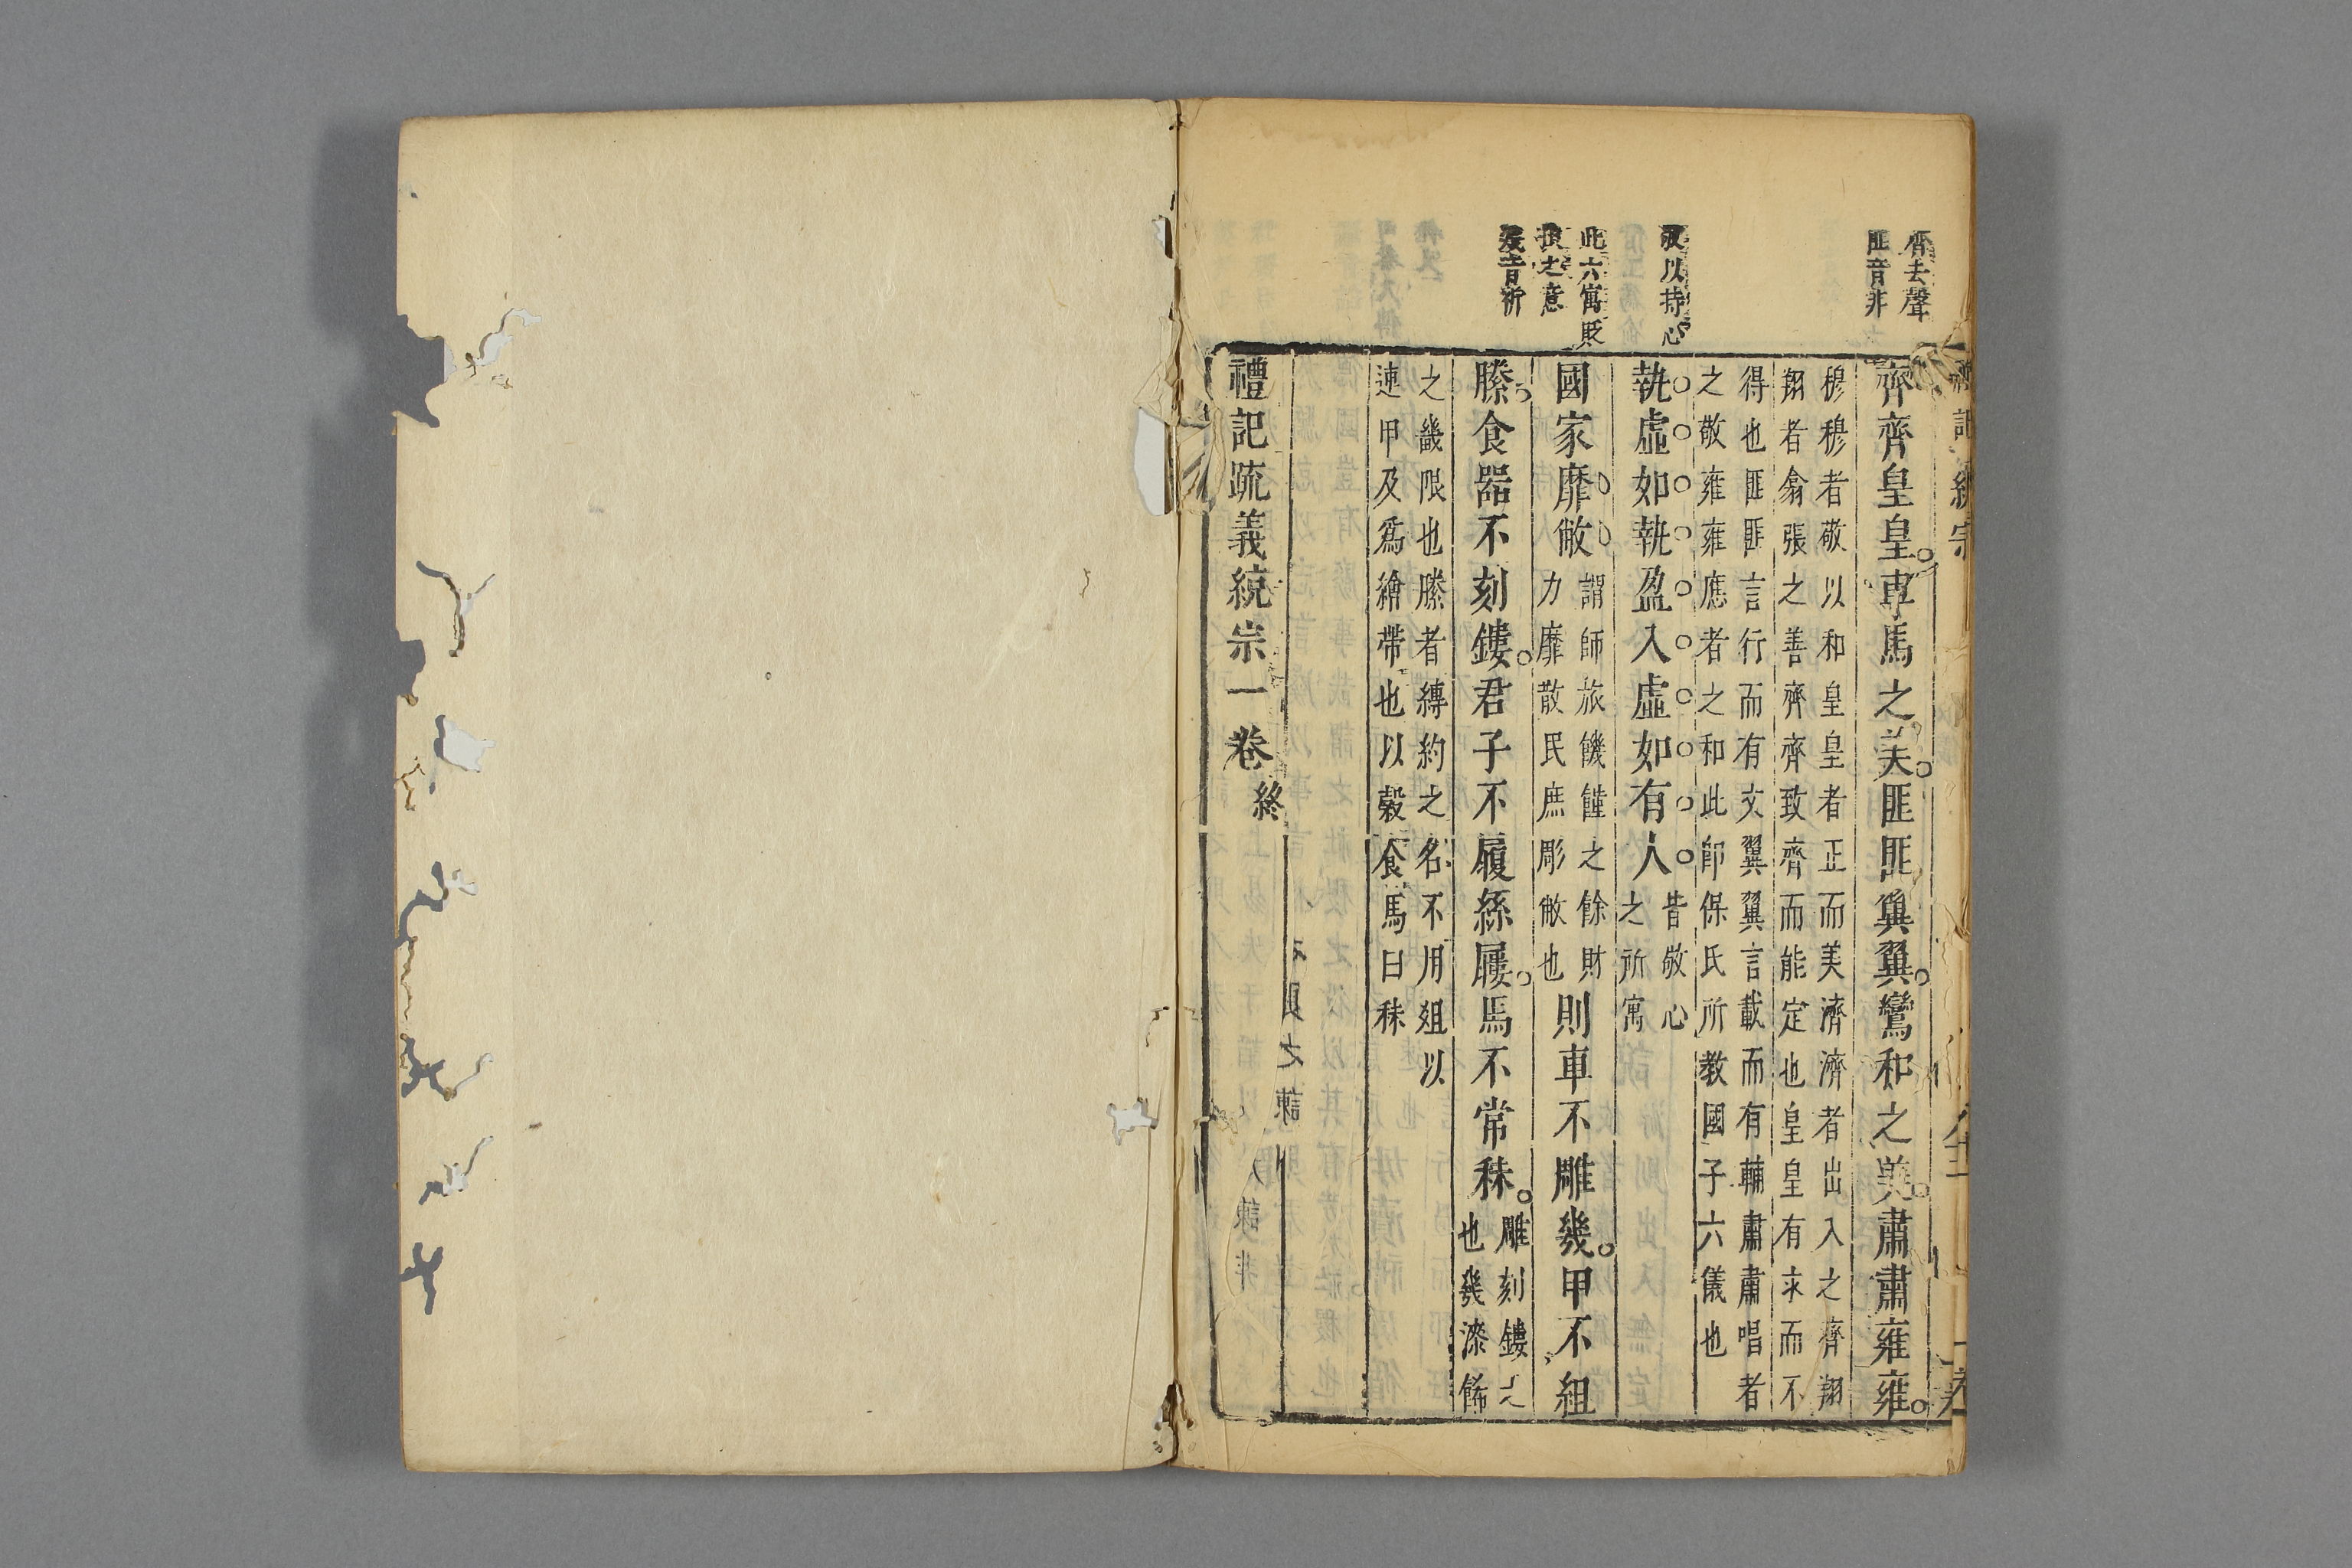 齊去聲
匪音非
以持心
此六寓貶
之意
幾音祈
齊齊皇皇車馬之美匪匪翼翼鸞和之美肅肅雍雍
穆穆者敬以和皇皇者正而美濟濟者出入之齊翔
翔者翕張之善齊齊致齊而能定也皇皇有求而不
得也匪匪言行而有文翼翼言載而有輔肅肅唱者
之敬雍雍應者之和此卽保氏所教國子六儀也
執虛如執盈入虛如有人
皆敬心
之所寓
國家靡敝
謂師旅饑饉之餘財
力靡散民庶彫敝也
則車不雕幾甲不組
縢食器不刻鏤君子不履絲屨馬不常秣
雕刻鏤之
也幾漆飾
之畿限也縢者縛約之名不用組以
連甲及爲繪帶也以穀食馬曰秣
禮記疏義統宗一卷終